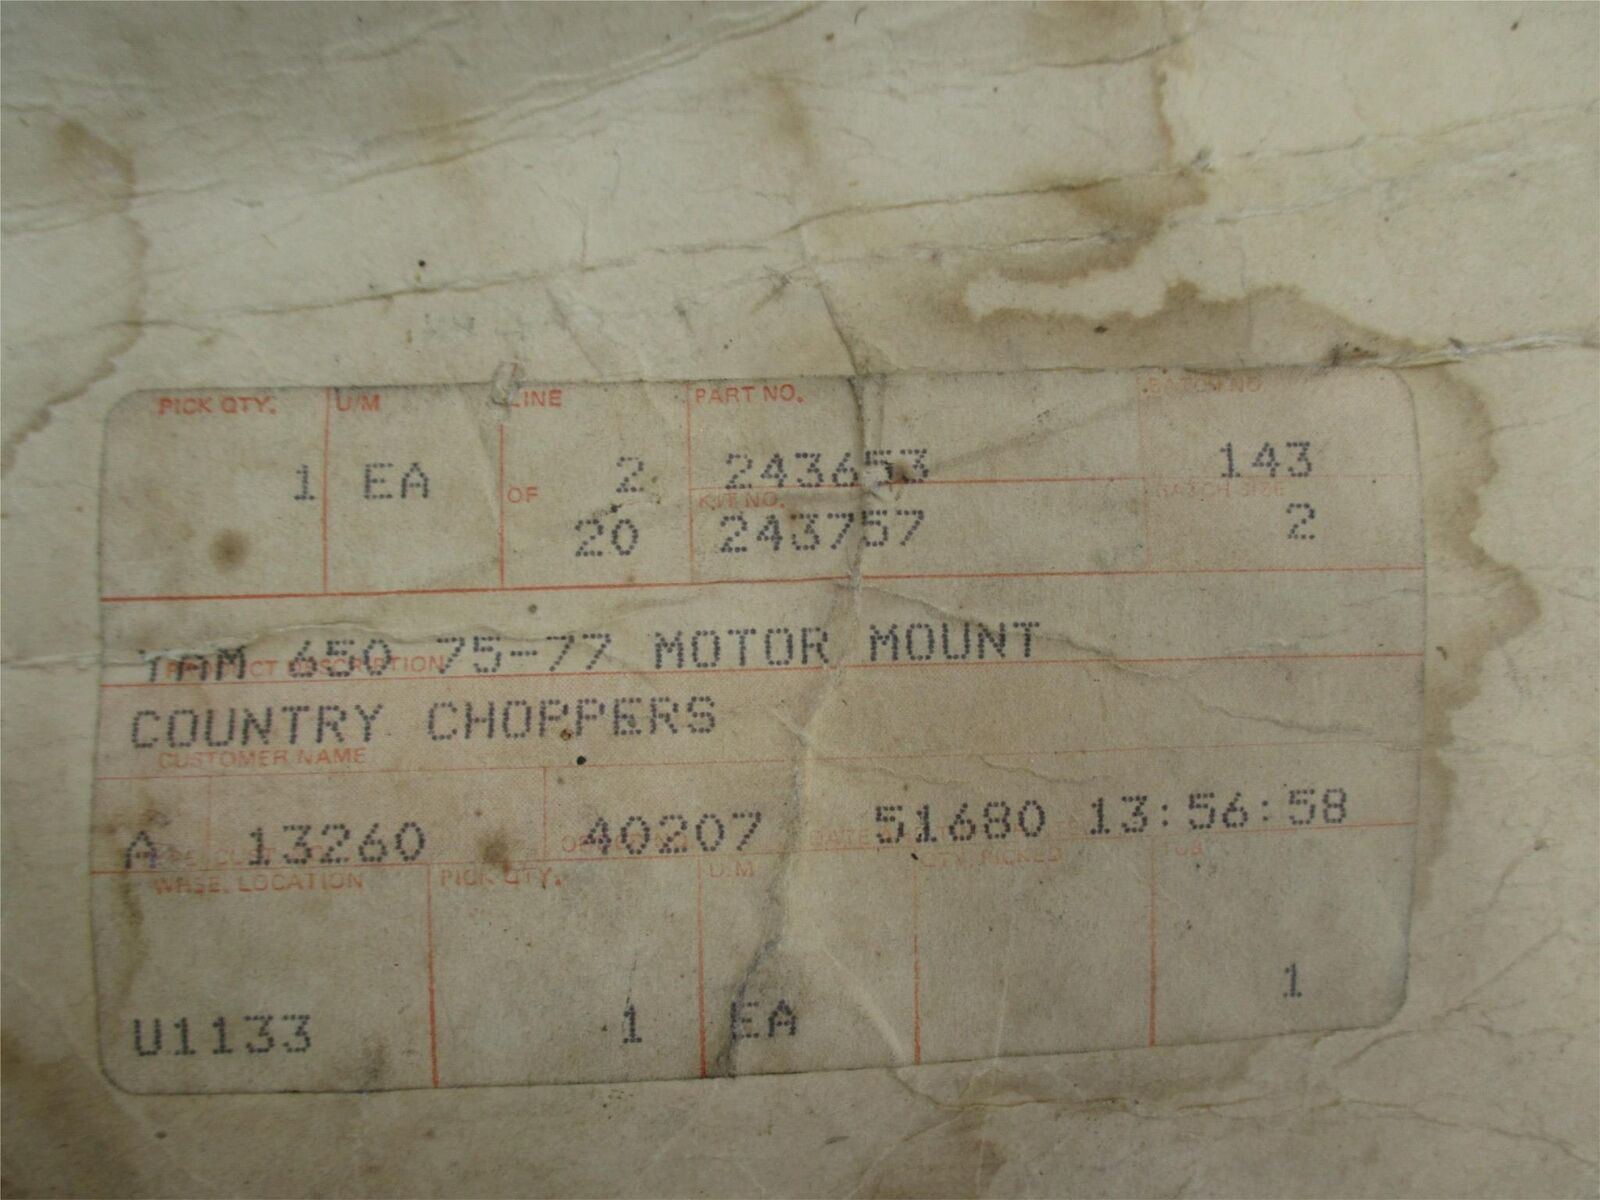 PICK QTY. U/M LINE PART NO. BATCH NO.
1 EA OF 2 243653 143
KIT NO. BATCH SIZE
20 243757 2
YAM 650 75-77 MOTOR MOUNT
PRODUCT DESCRIPTION
COUNTRY CHOPPERS
CUSTOMER NAME
A 13260 40207 51680 13:56:58
DATE
WHSE. LOCATION PICK QTY. U/M QTY. PICKED TUB
U1133 1 EA 1